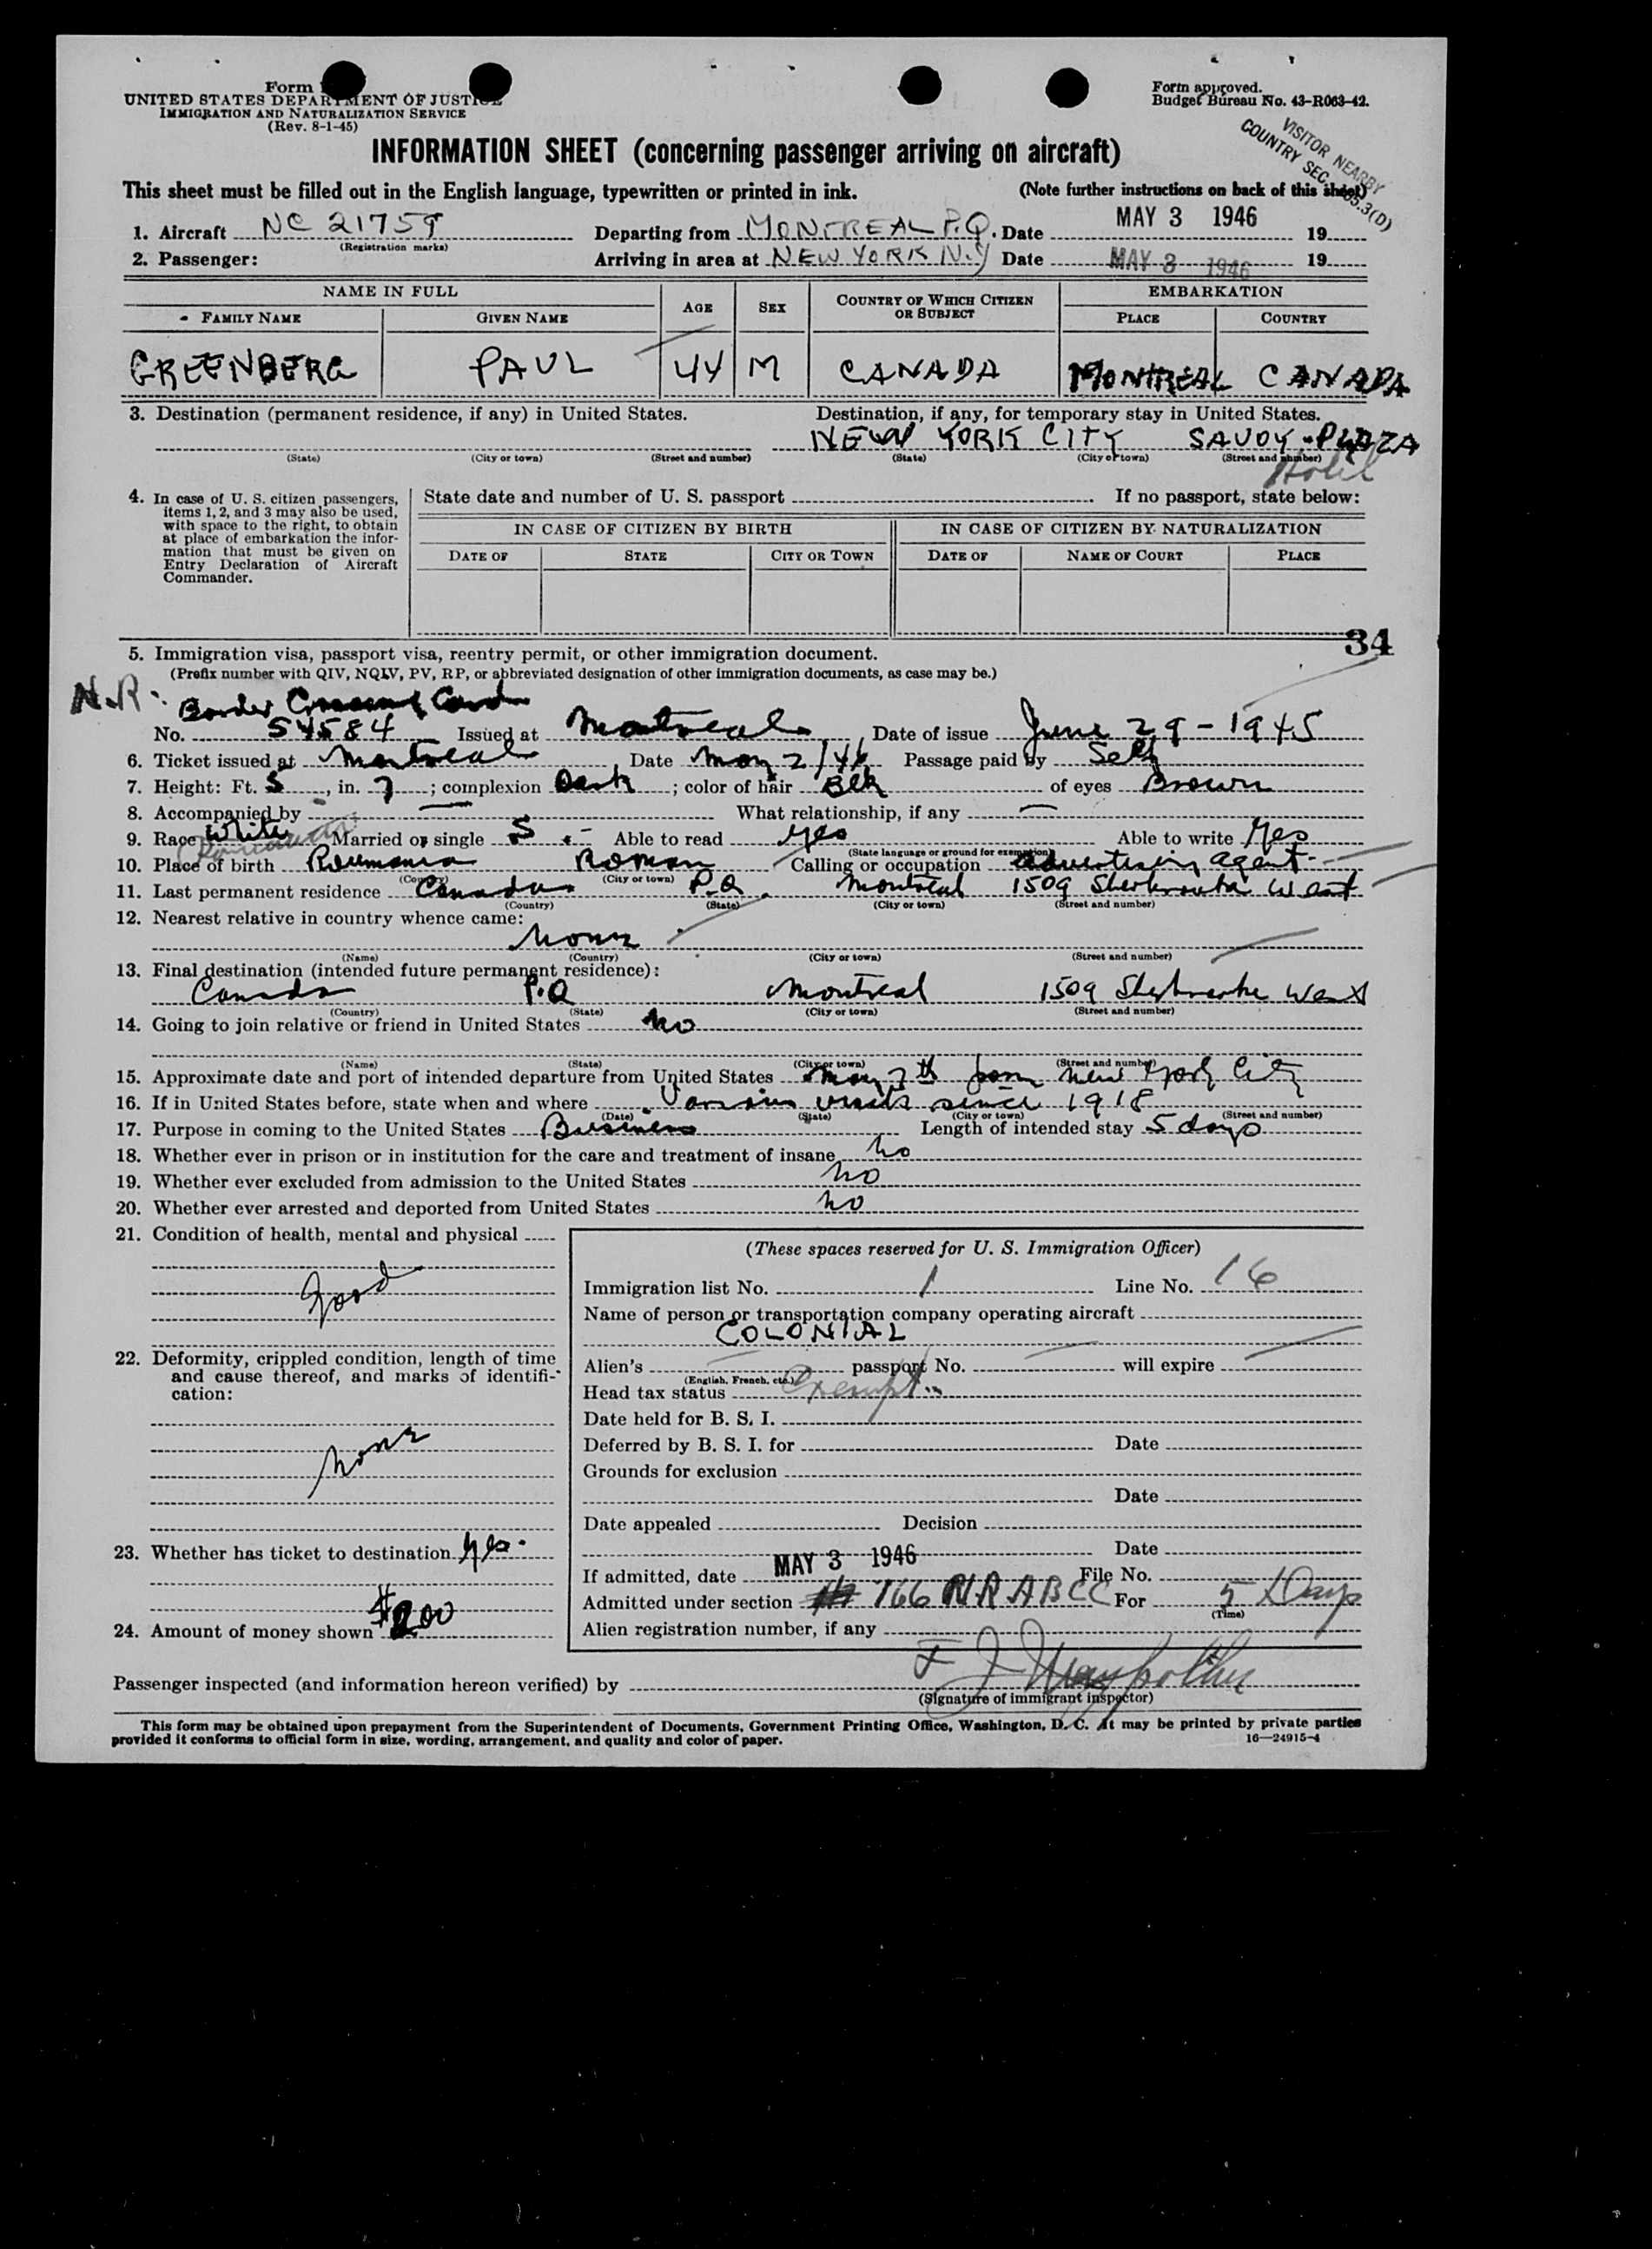 Form
UNITED STATES DEPARTMENT OF JUSTICE
IMMIGRATION AND NATURALIZATION SERVICE
(Rev. 8-1-45)
Form approved.
Budget Bureau No. 43-R063-42.
VISITOR NEARBY
COUNTRY SEC. 3(D)
INFORMATION SHEET (concerning passenger arriving on aircraft)
This sheet must be filled out in the English language, typewritten or printed in ink. (Note further instructions on back of this sheet)
1. Aircraft NC 21759 Departing from MONTREAL P.Q. Date MAY 3 1946 19
(Registration marks)
2. Passenger: Arriving in area at NEW YORK N.Y Date MAY 3 1946 19
NAME IN FULL AGE SEX COUNTRY OF WHICH CITIZEN OR SUBJECT EMBARKATION
FAMILY NAME GIVEN NAME PLACE COUNTRY
GREENBERG PAUL 44 M CANADA MONTREAL CANADA
3. Destination (permanent residence, if any) in United States. Destination, if any, for temporary stay in United States.
NEW YORK CITY SAVOY-PLAZA
(State) (City or town) (Street and number) (State) (City or town) (Street and number)
Hotel
4. In case of U. S. citizen passengers, items 1, 2, and 3 may also be used, with space to the right, to obtain at place of embarkation the information that must be given on Entry Declaration of Aircraft Commander.
State date and number of U. S. passport If no passport, state below:
IN CASE OF CITIZEN BY BIRTH IN CASE OF CITIZEN BY NATURALIZATION
DATE OF STATE CITY OR TOWN DATE OF NAME OF COURT PLACE
34
5. Immigration visa, passport visa, reentry permit, or other immigration document.
(Prefix number with QIV, NQIV, PV, RP, or abbreviated designation of other immigration documents, as case may be.)
N.R. Border Crossing Card
No. 54584 Issued at Montreal Date of issue June 29-1945
6. Ticket issued at Montreal Date May 2/46 Passage paid by Self
7. Height: Ft. 5, in. 7; complexion Dark; color of hair Blk of eyes Brown
8. Accompanied by — What relationship, if any —
9. Race White Married or single S Able to read Yes Able to write Yes
(State language or ground for exemption)
10. Place of birth Roumania Roman Calling or occupation advertising agent
(Country) (City or town)
11. Last permanent residence Canada P.Q. Montreal 1509 Sherbrooke West
(Country) (State) (City or town) (Street and number)
12. Nearest relative in country whence came:
None
(Name) (Country) (City or town) (Street and number)
13. Final destination (intended future permanent residence):
Canada P.Q Montreal 1509 Sherbrooke West
(Country) (State) (City or town) (Street and number)
14. Going to join relative or friend in United States No
(Name) (State) (City or town) (Street and number)
15. Approximate date and port of intended departure from United States May 7th from New York City
16. If in United States before, state when and where Various visits since 1918
(Date) (State) (City or town) (Street and number)
17. Purpose in coming to the United States Business Length of intended stay 5 days
18. Whether ever in prison or in institution for the care and treatment of insane No
19. Whether ever excluded from admission to the United States No
20. Whether ever arrested and deported from United States No
21. Condition of health, mental and physical
Good
22. Deformity, crippled condition, length of time and cause thereof, and marks of identification:
None
23. Whether has ticket to destination Yes.
24. Amount of money shown $200
(These spaces reserved for U. S. Immigration Officer)
Immigration list No. 1 Line No. 16
Name of person or transportation company operating aircraft
COLONIAL
Alien's passport No. will expire
(English, French, etc.)
Head tax status Exempt
Date held for B. S. I.
Deferred by B. S. I. for Date
Grounds for exclusion
Date
Date appealed Decision
Date
If admitted, date MAY 3 1946 File No.
Admitted under section 166 NR ABCC For 5 Days
(Time)
Alien registration number, if any
Passenger inspected (and information hereon verified) by
(Signature of immigrant inspector)
This form may be obtained upon prepayment from the Superintendent of Documents, Government Printing Office, Washington, D. C. It may be printed by private parties
provided it conforms to official form in size, wording, arrangement, and quality and color of paper. 16—24915-4